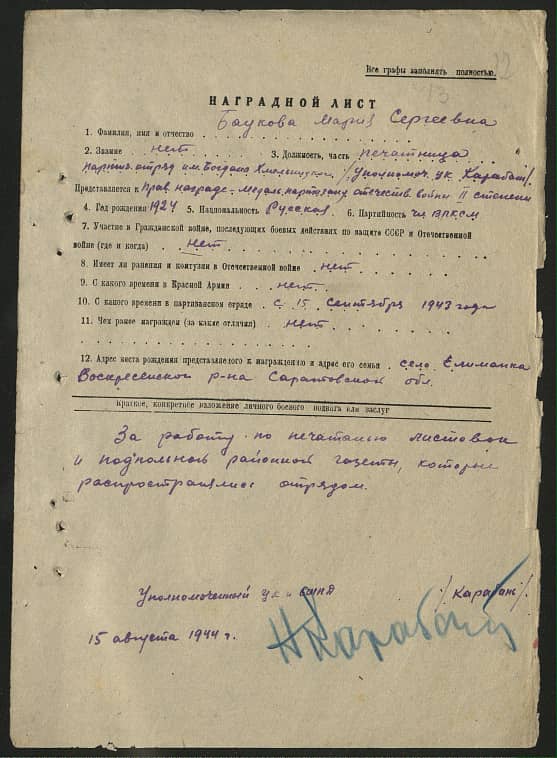 Все графы заполнять полностью.
НАГРАДНОЙ ЛИСТ
1. Фамилия, имя и отчество Баукова Мария Сергеевна
2. Звание нет 3. Должность, часть печатница
партиз. отряд им. Богдана Хмельницкого /Уполномоч. ук. Карабан/
Представляется к Прав. награде - медаль партизану отечеств. войны II степени
4. Год рождения 1924 5. Национальность Русская 6. Партийность чл ВЛКСМ
7. Участие в Гражданской войне, последующих боевых действиях по защите СССР и Отечественной
войне (где и когда) нет
8. Имеет ли ранения и контузии в Отечественной войне нет
9. С какого времени в Красной Армии нет
10. С какого времени в партизанском отряде с 15 сентября 1943 года
11. Чем ранее награжден (за какие отличия) нет
12. Адрес места рождения представляемого к награждению и адрес его семьи село Елшанка
Воскресенской р-на Саратовской обл.
Краткое, конкретное изложение личного боевого подвига или заслуг
За работу по печатанью листовок
и подпольной районной газеты, которые
распространялись отрядом.
Уполномоченный /Карабан/.
15 августа 1944 г. НКарабан